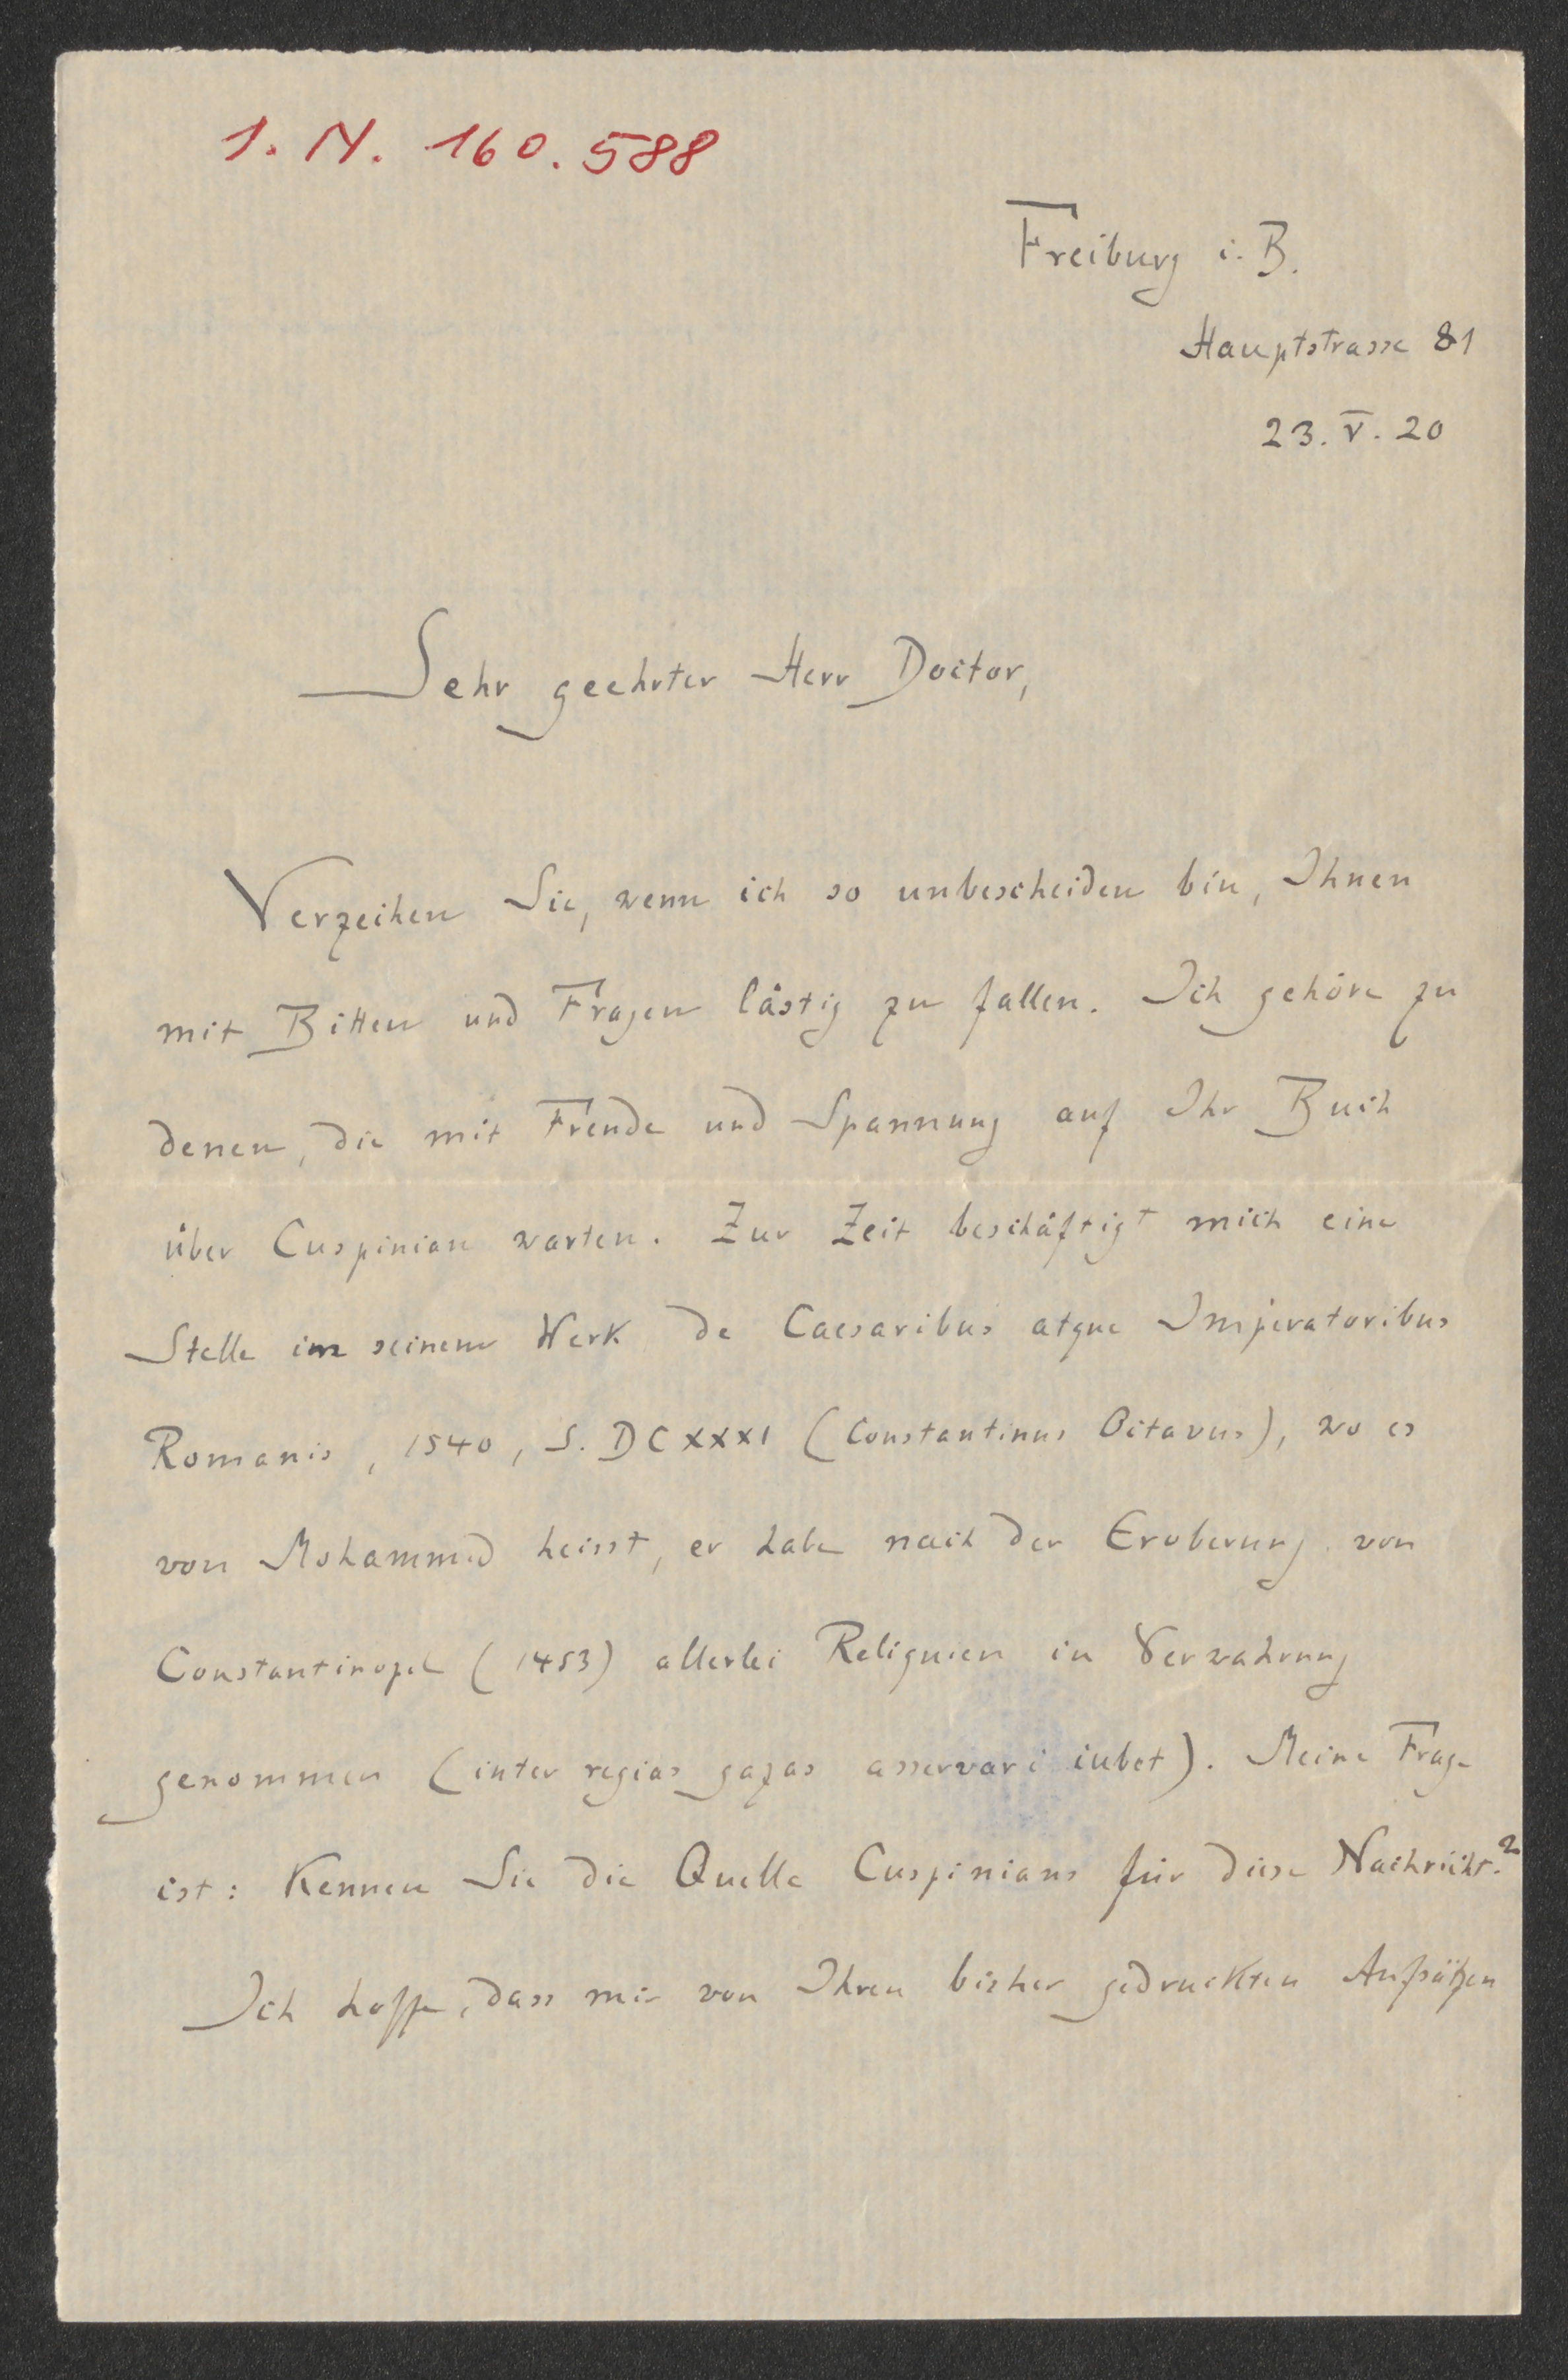 I. N. 160.588
Freiburg i. B.
Hauptstrasse 81
23. V. 20
Sehr geehrter Herr Doctor,
Verzeihen Sie, wenn ich so unbescheiden bin, Ihnen
mit Bitten und Fragen lästig zu fallen. Ich gehöre zu
denen, die mit Freude und Spannung auf Ihr Buch
über Cuspinian warten. Zur Zeit beschäftigt mich eine
Stelle in seinem Werk de Caesaribus atque Imperatoribus
Romanis, 1540, S. DCXXXI (Constantinus Octavus), wo es
von Mohammed heisst, er habe nach der Eroberung von
Constantinopel (1453) allerlei Reliquien in Verwahrung
genommen (inter regias gazas asservari iubet). Meine Frage
ist: Kennen Sie die Quelle Cuspinians für diese Nachricht?
Ich hoffe, dass mir von Ihren bisher gedruckten Aufsätzen